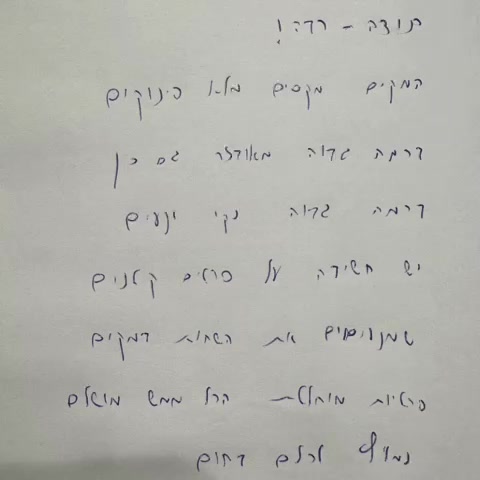 תודה - רבה!
המקום מקסים מלא פינוקים
ברמה גבוה מאובזר גם כן
ברמה גבוה נקי ונעים
יש חשיבה על פרטים קטנים
שמנעימים את השהות במקום
פרטיות מוחלטת הכל ממש מושלם
נמליץ לכולם בחום